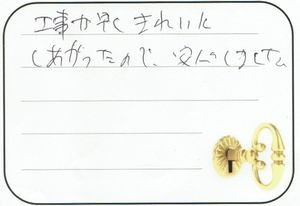 工事が早く きれいに
しあがったので、安心しました